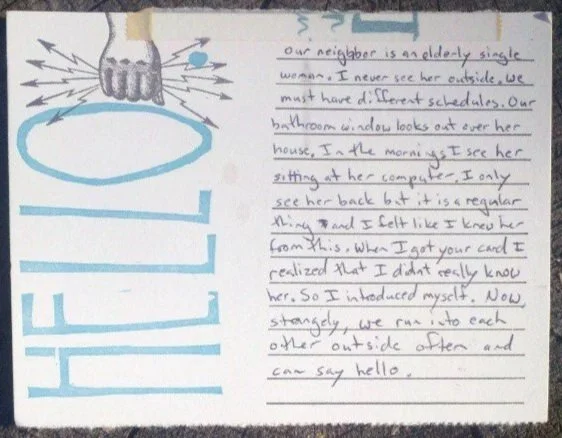 HELLO
our neighbor is an elderly single
woman. I never see her outside. We
must have different schedules. Our
bathroom window looks out over her
house. In the mornings I see her
sitting at her computer. I only
see her back but it is a regular
thing and I felt like I knew her
from this. When I got your card I
realized that I didnt really know
her. So I introduced myself. Now,
strangely, we run into each
other outside often and
can say hello.